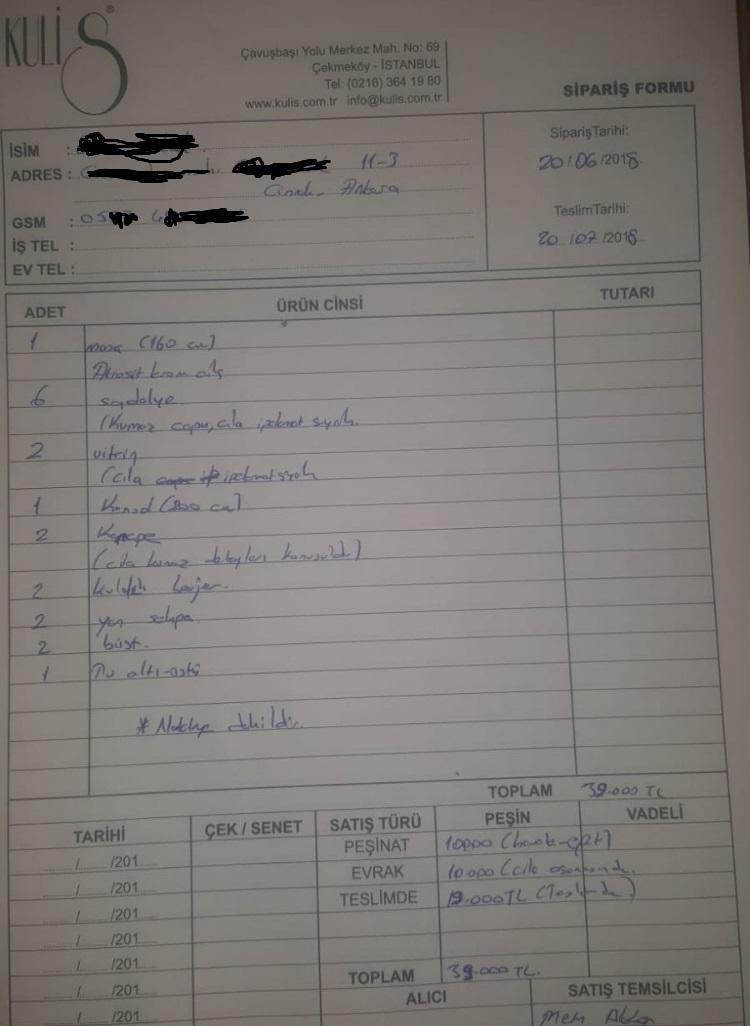 KULİS®
Çavuşbaşı Yolu Merkez Mah. No: 69
Çekmeköy - İSTANBUL
Tel: (0216) 364 19 80
www.kulis.com.tr info@kulis.com.tr
SİPARİŞ FORMU
İSİM :
ADRES : 11-3
Ankara
GSM : 05
İŞ TEL :
EV TEL :
SiparişTarihi:
20/06/2018
TeslimTarihi:
20/07/2018
ADET ÜRÜN CİNSİ TUTARI
1 masa (160 cm)
krom
6 sandalye
(Kumaş cila ipekmat siyah
2 vitrin
(cila ipekmat siyah
1 Konsol (200 cm)
2 Kanepe
(cila kumaş detayları konuşuldu)
2 kulaplı berjer.
2 yan sehpa.
2 büst.
1 Tv altı-üstü
* Nakliye dahildir.
TOPLAM 39.000 TL
TARİHİ ÇEK / SENET SATIŞ TÜRÜ PEŞİN VADELİ
/ /201 PEŞİNAT 10000
/ /201 EVRAK 10000 (cila
/ /201 TESLİMDE 19.000TL (Teslimde)
/ /201
/ /201
/ /201 TOPLAM 39.000 TL.
/ /201 ALICI SATIŞ TEMSİLCİSİ
/ /201